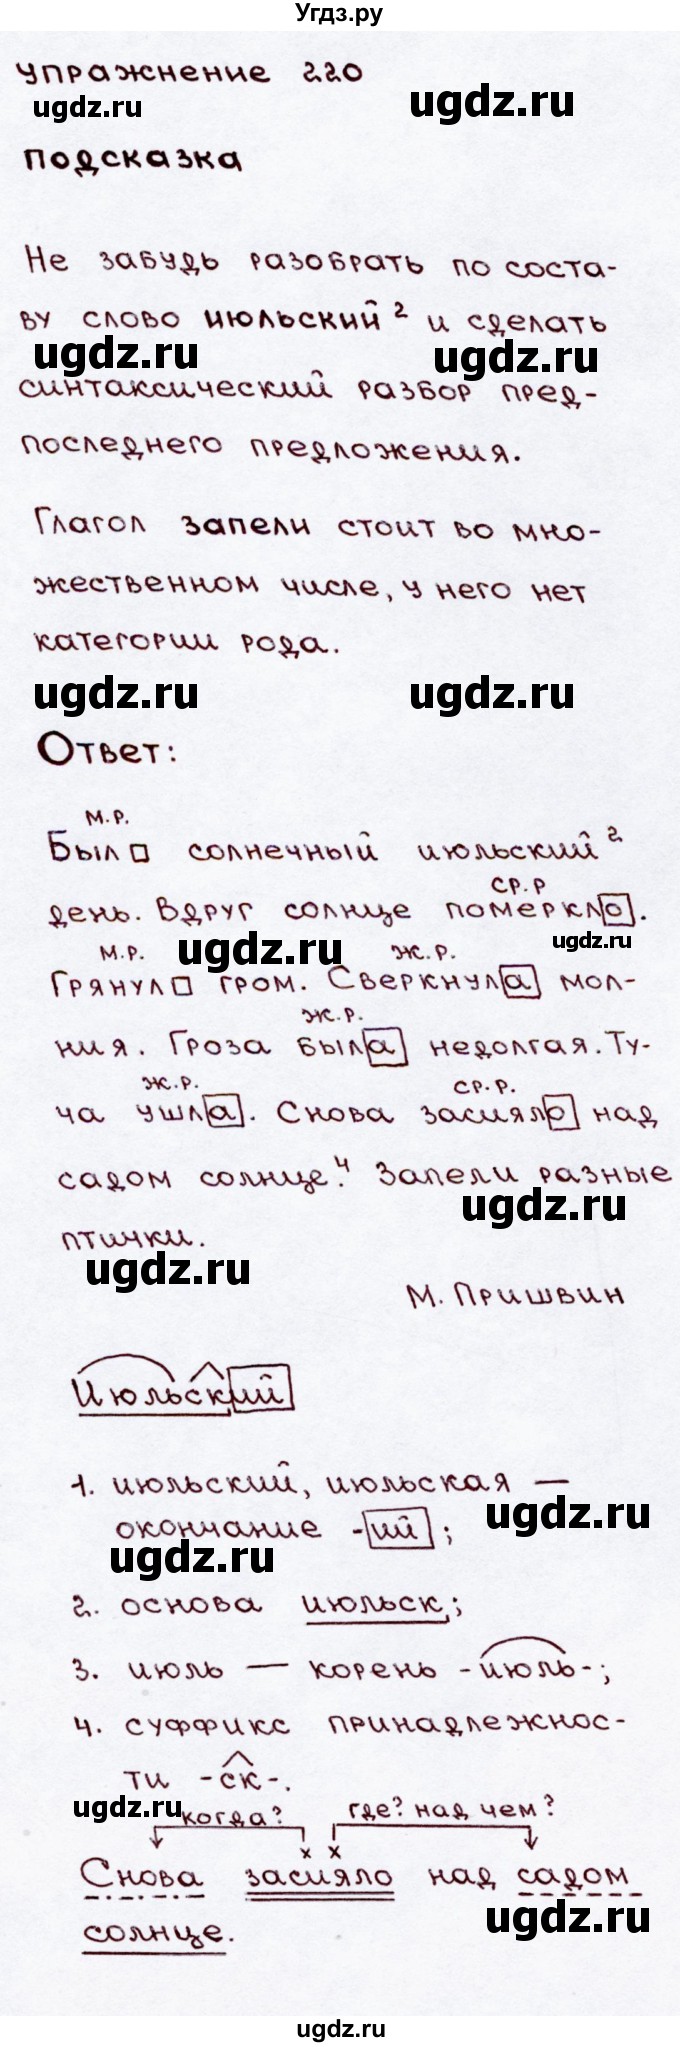 Угдз.ру
упражнение 220
ugdz.ru
ugdz.ru
подсказка
Не забудь разобрать по соста-
ву слово июльский² и сделать
ugdz.ru
ugdz.ru
синтаксический разбор пред-
последнего предложения.
Глагол запели стоит во мно-
жественном числе, у него нет
категории рода.
ugdz.ru
ugdz.ru
Ответ:
м.р.
Был солнечный июльский²
ср.р
день. Вдруг солнце померкло.
ugdz.ru
ugdz.ru
м.р. ж.р.
Грянул гром. Сверкнула мол-
ж.р.
ния. Гроза была недолгая. Ту-
ж.р. ср.р.
ча ушла. Снова засияло над
садом солнце.⁴ Запели разные
ugdz.ru
птички.
ugdz.ru
М. Пришвин
Июльский
1. июльский, июльская —
ugdz.ru
окончание -ий;
ugdz.ru
2. основа июльск;
3. июль — корень -июль-;
4. суффикс принадлежнос-
ти -ск-.
ugdz.ru
когда? где? над чем?
х х
Снова засияло над садом
ugdz.ru
солнце.
ugdz.ru